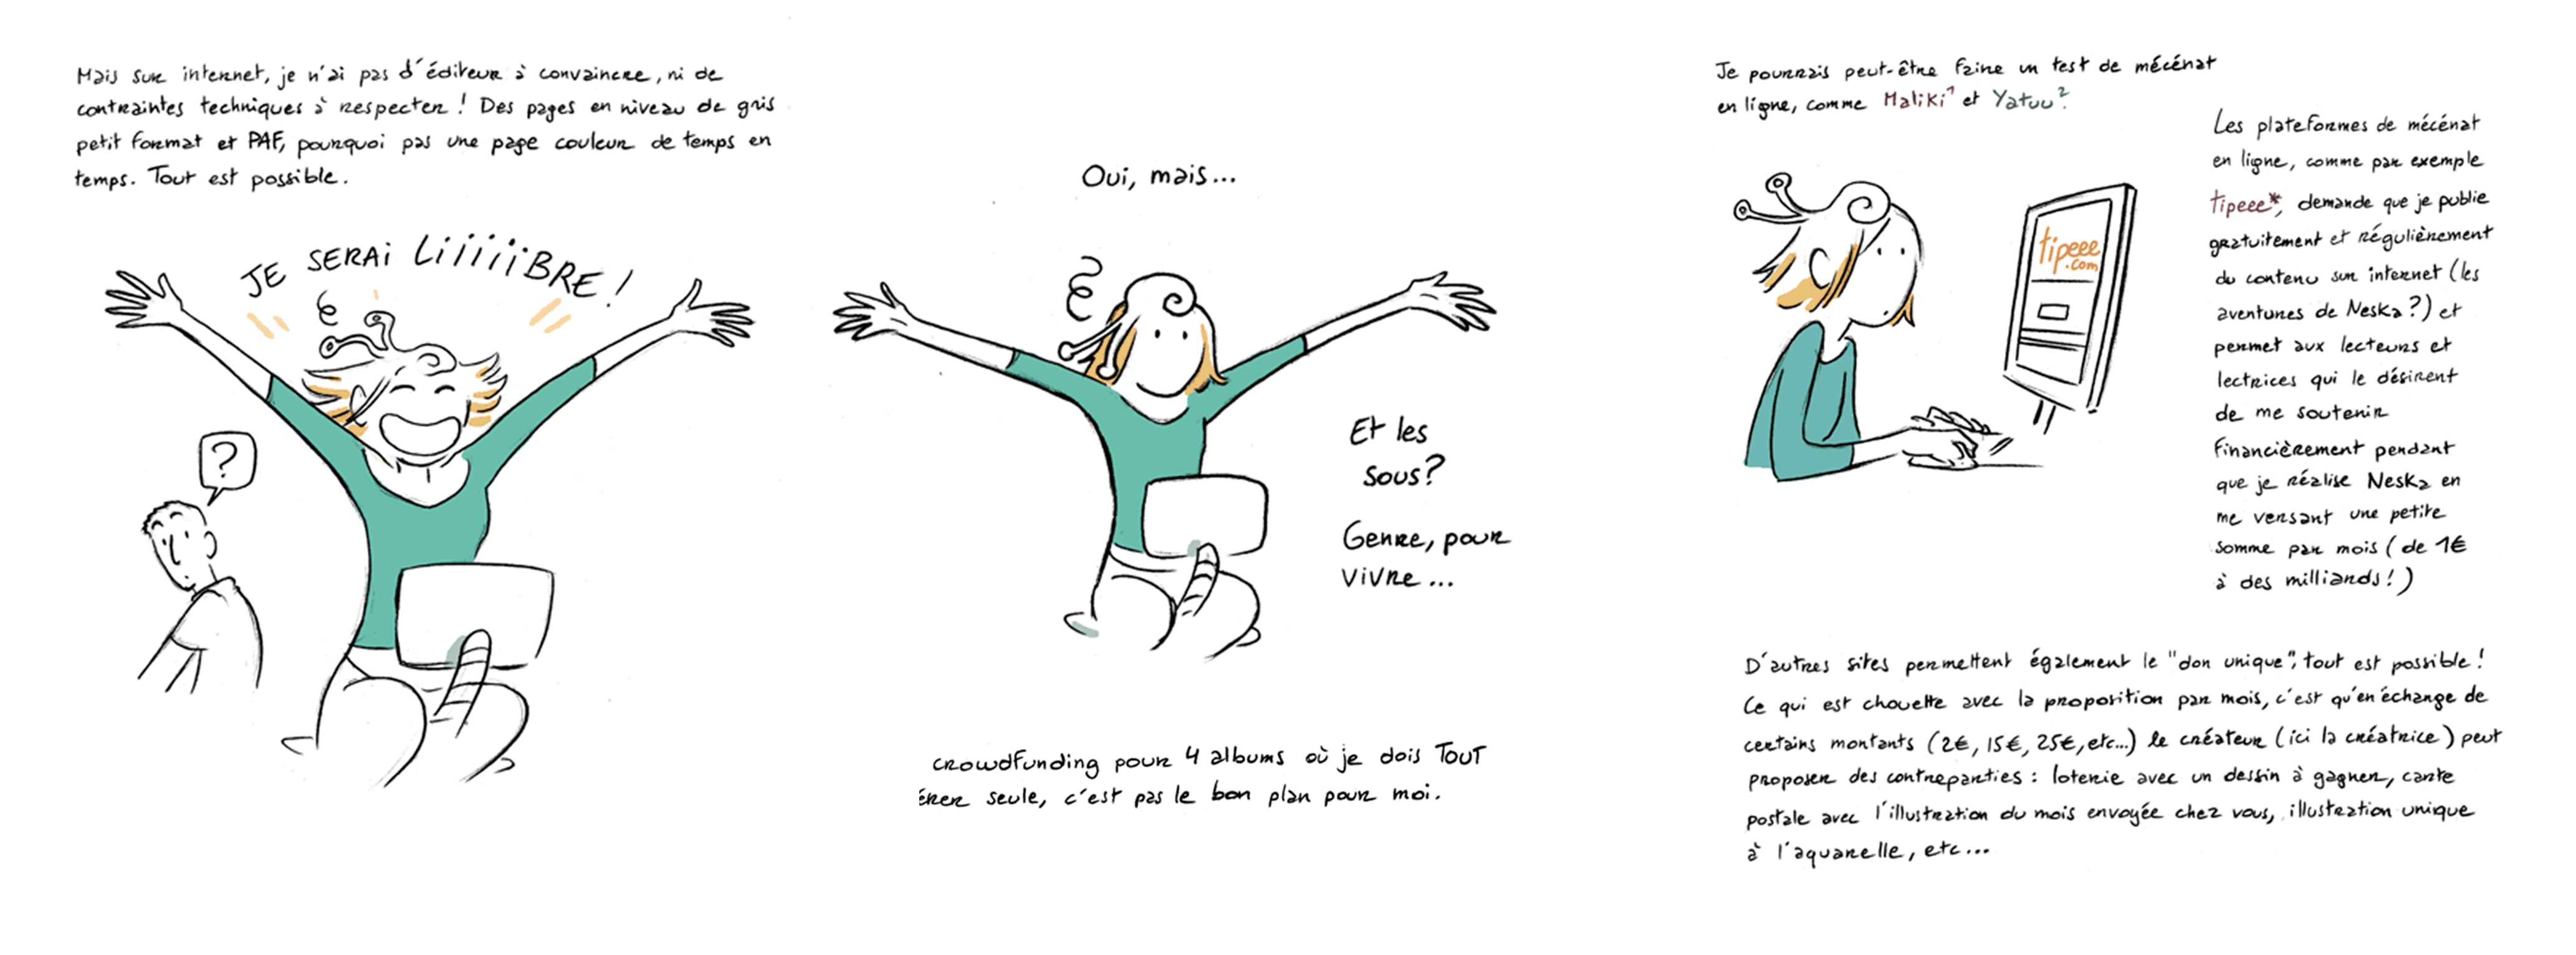 Mais sur internet, je n'ai pas d'éditeur à convaincre, ni de
contraintes techniques à respecter ! Des pages en niveau de gris
petit format et PAF, pourquoi pas une page couleur de temps en
temps. Tout est possible.
JE SERAI LiiiiiBRE !
?
Oui, mais...
Et les
sous?
Genre, pour
vivre...
crowdfunding pour 4 albums où je dois TOUT
érer seule, c'est pas le bon plan pour moi.
Je pourrais peut-être faire un test de mécénat
en ligne, comme Maliki¹ et Yatuu².
tipeee
.com
Les plateformes de mécénat
en ligne, comme par exemple
tipeee*, demande que je publie
gratuitement et régulièrement
du contenu sur internet (les
aventures de Neska ?) et
permet aux lecteurs et
lectrices qui le désirent
de me soutenir
financièrement pendant
que je réalise Neska en
me versant une petite
somme par mois (de 1€
à des milliards !)
D'autres sites permettent également le "don unique", tout est possible !
Ce qui est chouette avec la proposition par mois, c'est qu'en échange de
certains montants (2€, 15€, 25€, etc...) le créateur (ici la créatrice) peut
proposer des contreparties : loterie avec un dessin à gagner, carte
postale avec l'illustration du mois envoyée chez vous, illustration unique
à l'aquarelle, etc...